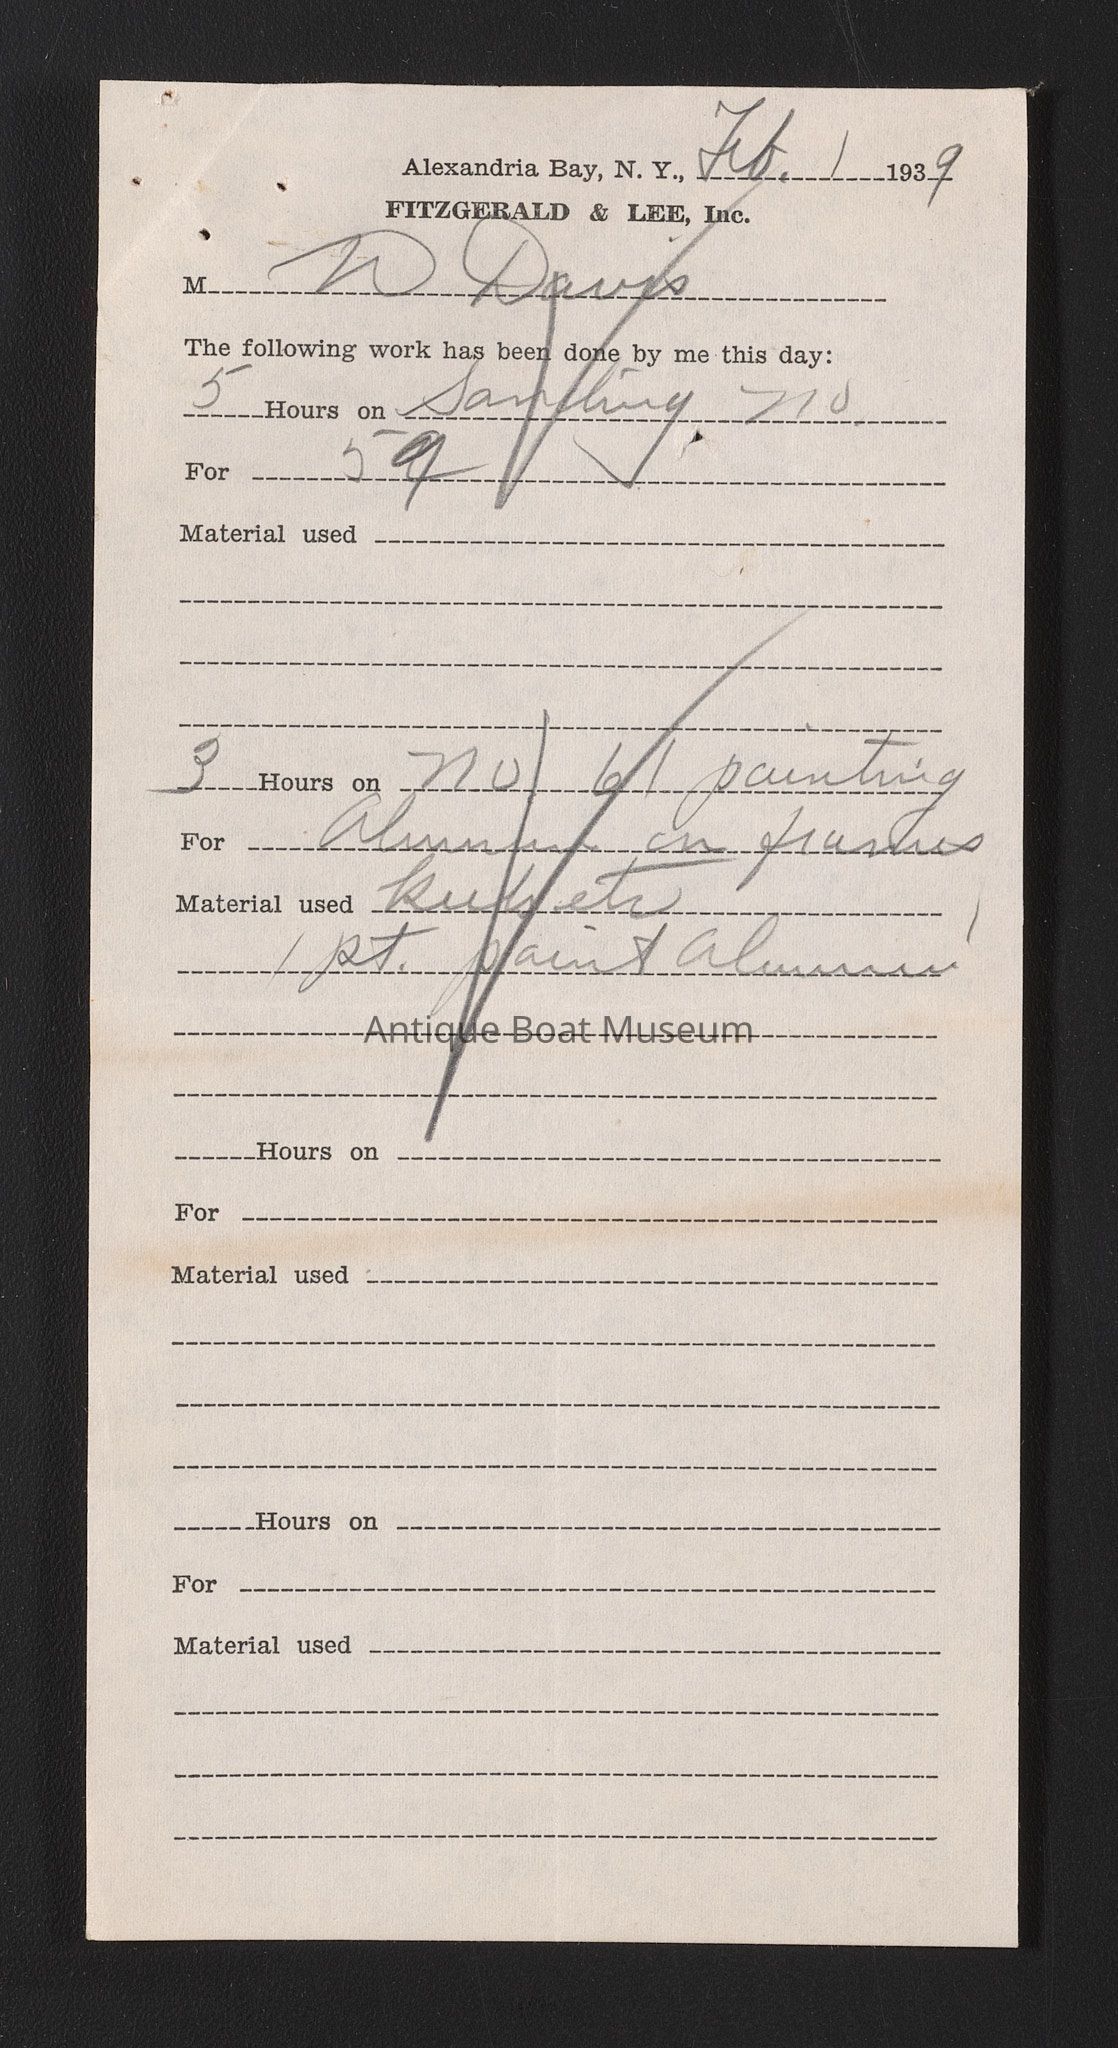 Alexandria Bay, N. Y., Feb. 1 1939
FITZGERALD & LEE, Inc.
M W Davis
The following work has been done by me this day:
5 Hours on Sanding no.
For 59
Material used
3 Hours on no. 61 painting
For Alumn on frames
Material used etc
1 pt. paint Alumn
Antique Boat Museum
Hours on
For
Material used
Hours on
For
Material used